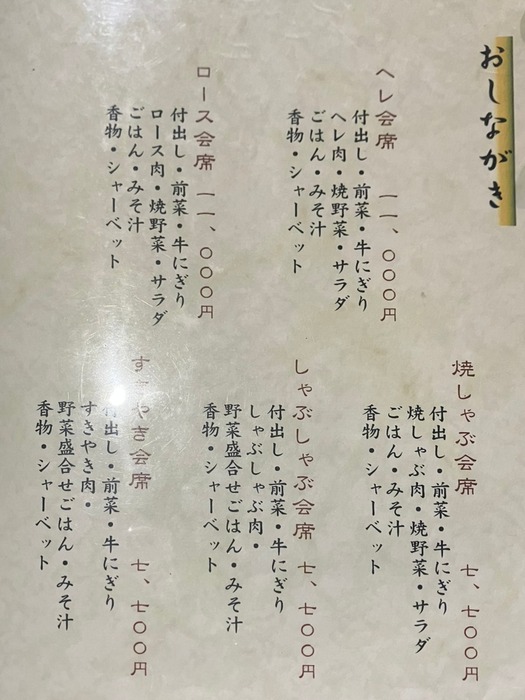 おしながき
ヘレ会席 一一、〇〇〇円
付出し・前菜・牛にぎり
ヘレ肉・焼野菜・サラダ
ごはん・みそ汁
香物・シャーベット
ロース会席 一一、〇〇〇円
付出し・前菜・牛にぎり
ロース肉・焼野菜・サラダ
ごはん・みそ汁
香物・シャーベット
焼しゃぶ会席 七、七〇〇円
付出し・前菜・牛にぎり
焼しゃぶ肉・焼野菜・サラダ
ごはん・みそ汁
香物・シャーベット
しゃぶしゃぶ会席 七、七〇〇円
付出し・前菜・牛にぎり
しゃぶしゃぶ肉・
野菜盛合せごはん・みそ汁
香物・シャーベット
すきやき会席 七、七〇〇円
付出し・前菜・牛にぎり
すきやき肉・
野菜盛合せごはん・みそ汁
香物・シャーベット